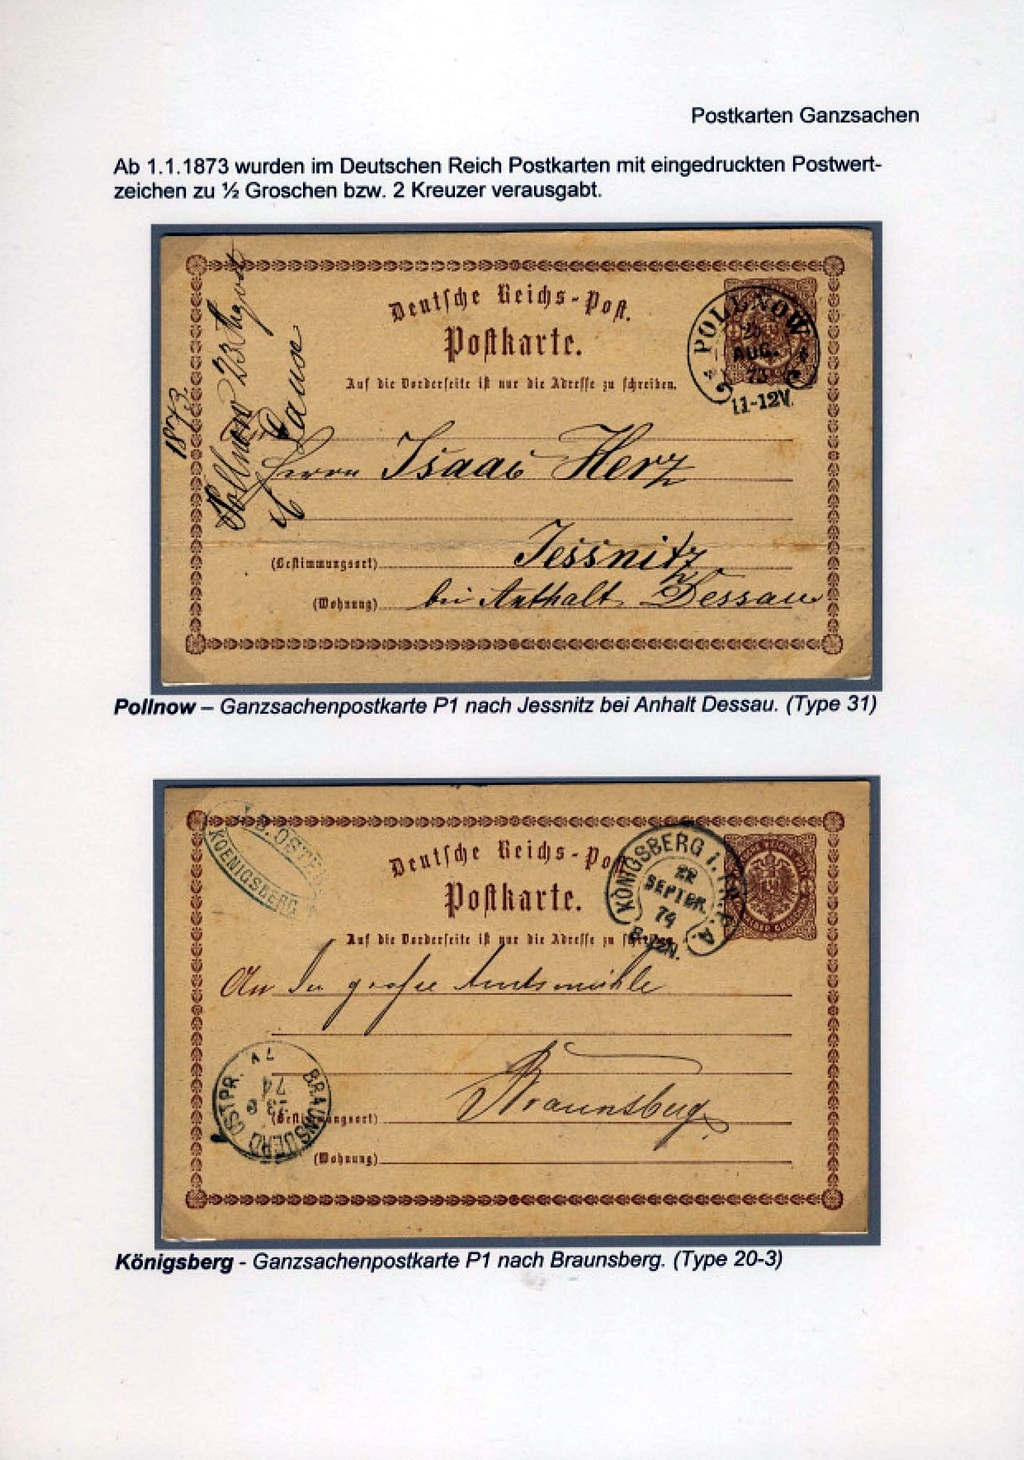 Postkarten Ganzsachen
Ab 1.1.1873 wurden im Deutschen Reich Postkarten mit eingedruckten Postwert-
zeichen zu ½ Groschen bzw. 2 Kreuzer verausgabt.
Deutsche Reichs-Post.
Postkarte.
Auf die Vorderseite ist nur die Adresse zu schreiben.
POLLNOW
AUG.
73
11-12V.
Pollnow 23 August
1873
Herrn Isaac Herz
(Bestimmungsort) Jessnitz
(Wohnung) bei Anhalt Dessau
Pollnow – Ganzsachenpostkarte P1 nach Jessnitz bei Anhalt Dessau. (Type 31)
KOENIGSBERG
Deutsche Reichs-Post
Postkarte.
Auf die Vorderseite ist nur die Adresse zu schreiben.
KÖNIGSBERG i. PR. P.A.
22
SEPTBR.
74
An die große Amtsmühle
Braunsberg
BRAUNSBERG OSTPR.
74
(Bestimmungsort)
(Wohnung)
Königsberg - Ganzsachenpostkarte P1 nach Braunsberg. (Type 20-3)